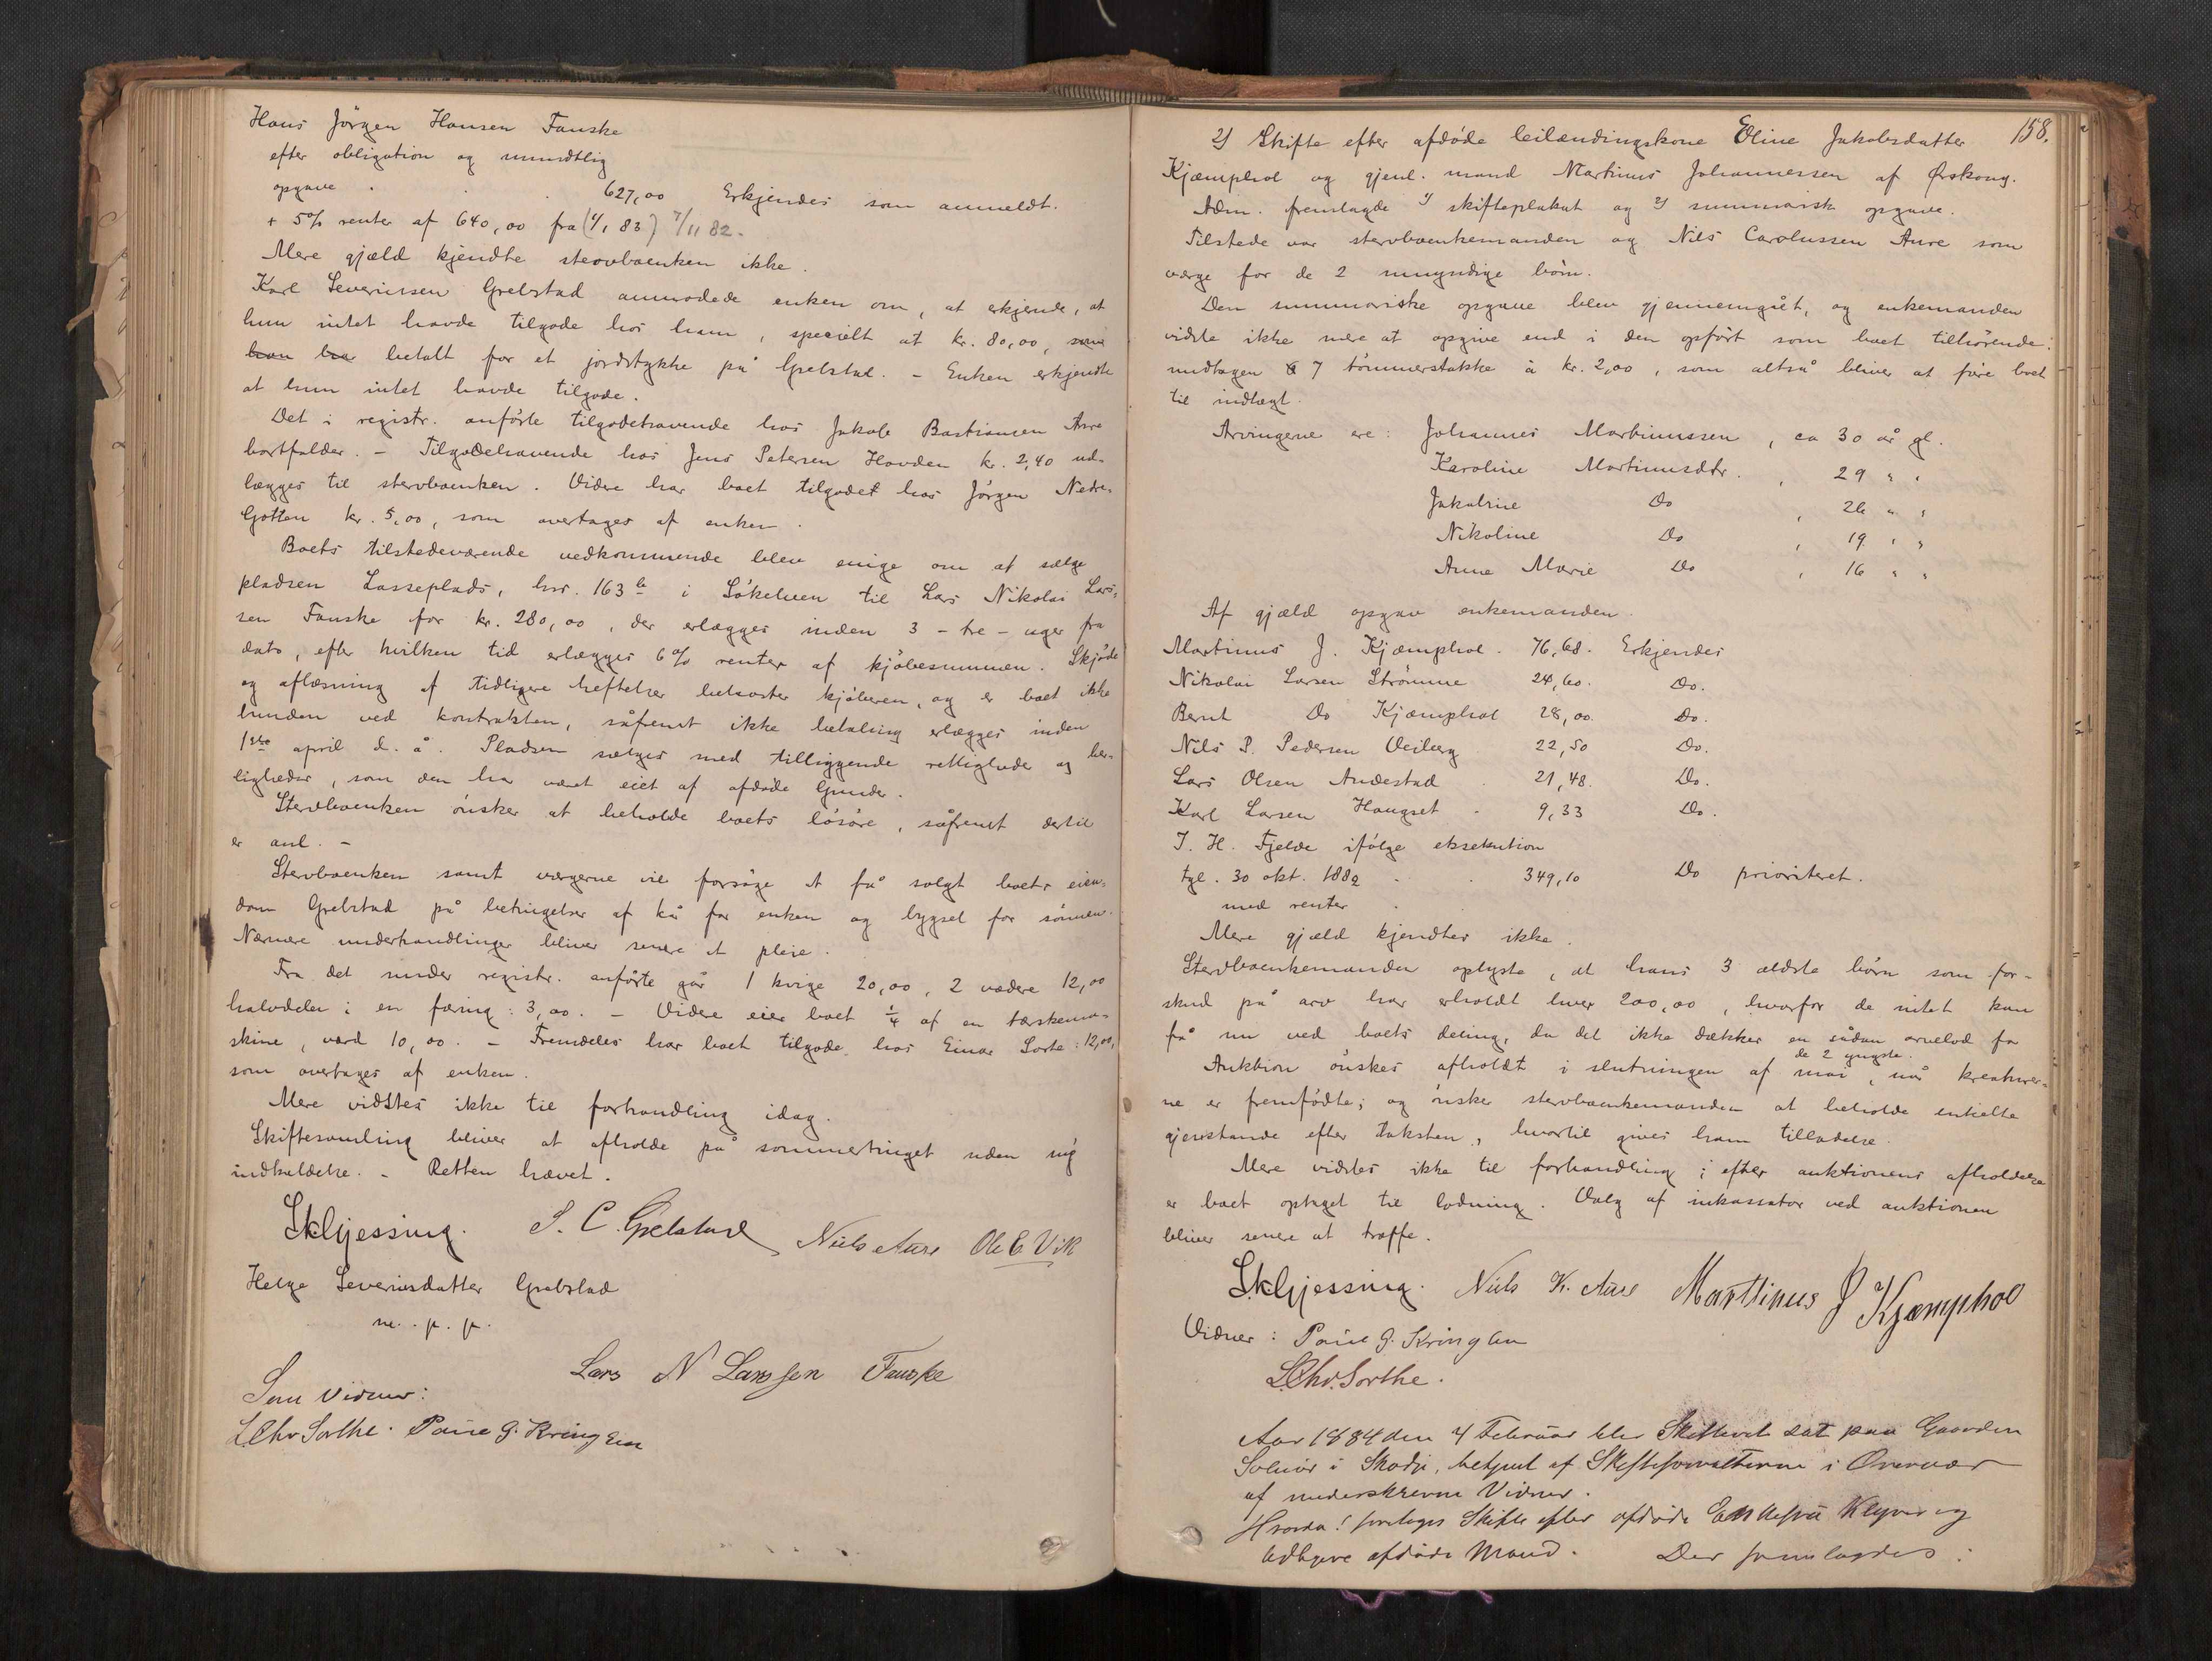 Hans Jörgen Hansen Fauske
efter obligation og mundtlig
opgave . . . 627,00 Erkjendes som anmeldt.
+ 5% renter af 640,00 fra (1/1 83) 7/11 82.
Mere gjæld kjendte stervboenken ikke.
Karl Severinsen Grebstad anmodede enken om, at erkjende, at
hun intet havde tilgode hos ham, specielt at kr. 80,00, som
han har betalt for et jordstykke på Grebstad. – Enken erkjendte
at hun intet havde tilgode.
Det i registr. anførte tilgodehavende hos Jakob Bastiansen Aure
bortfalder. – Tilgodehavende hos Jens Petersen Hovden kr. 2,40 ud-
lægges til stervboenken. Videre har boet tilgodet hos Jörgen Nedre-
Gotten kr. 5,00, som overtages af enken.
Boets tilstedeværende vedkommende blev enige om at sælge
pladsen Lasseplads, lnr. 163 b i Sökelven til Lars Nikolai Lars-
sen Fauske for kr. 280,00, der erlægges inden 3 – tre – uger fra
dato, efter hvilken tid erlægges 6% renter af kjöbesummen. Skjöde
og aflæsning af tidligere heftelser bekoster kjöberen, og er boet ikke
bunden ved kontrakten, såfremt ikke betaling erlægges inden
1ste april d. å. Pladsen sælges med tilliggende rettigheder og her-
ligheder, som den har været eiet af afdöde Gunder.
Stervboenken önsker at beholde boets lösöre, såfremt dertil
er anl. –
Stervboenken samt værgerne vil forsöge at få solgt boets eien-
dom Grebstad på betingelser af kå for enken og bygsel for sönnen.
Nærmere underhandlinger bliver senere at pleie.
Fra det under registr. anförte går 1 kvige 20,00, 2 vædere 12,00
halvdelen i en færing: 3,00. – Videre eier boet 1/4 af en tærskema-
skine, værd 10,00. – Fremdeles har boet tilgode hos Einar Sorte: 12,00,
som overtages af enken.
Mere vidstes ikke til forhandling idag.
Skiftesamling bliver at afholde på sommertinget uden ny
indkaldelse. – Retten hævet.
Skljessing. S. C. Grebstad Niels Aure Ole E Vik
Helge Severinsdatter Grebstad
m. p. p.
Lars N Larssen Fauske
Som Vidner:
L Chr Sorthe. Paul G. Kringsen
158.
2) Skifte efter afdöde leilændingskone Eline Jakobsdatter
Kjæmphol og gjenl. mand Martinus Johannessen af Ørskoug.
Adm. fremlagde 1) skifteplakat og 2) summarisk opgave.
Tilstede var stervboenkemanden og Nils Carolussen Aure som
værge for de 2 umyndige börn.
Den summariske opgave blev gjennemgåt, og enkemanden
vidste ikke mere at opgive end i den opfört som boet tilhörende.
undtagen 7 tömmerstokke à kr. 2,00, som altså bliver at före boet
til indtægt.
Arvingerne ere: Johannes Martinussen, ca 30 år gl.
Karoline Martinusdtr. , 29 " "
Jakobine Do , 26 " "
Nikoline Do , 19 " "
Anne Marie Do , 16 " "
Af gjæld opgav enkemanden.
Martinus J. Kjæmphol . 76,68. Erkjendes
Nikolai Larsen Strömme 24,60. Do.
Bernt Do Kjæmphol 28,00. Do.
Nils P. Pedersen Veiberg 22,50 Do.
Lars Olsen Andestad . 21,48. Do.
Karl Larsen Haugset . 9,33 Do.
J. H. Fjelde ifölge eksekution
tgl. 30 okt. 1882 . . 349,10 Do prioriteret.
med renter .
Mere gjæld kjendtes ikke.
Stervboenkemanden oplyste, at hans 3 ældste börn som for-
skud på arv har erholdt hver 200,00, hvorfor de intet kan
få nu ved boets deling, da det ikke dækker en sådan arvelod for
de 2 yngste.
Auktion önskes afholdt i slutningen af mai, når kreaturer-
ne er fremfödte; og önsker stervboenkemanden at beholde enkelte
gjenstande efter taksten, hvortil gives ham tilladelse.
Mere vidstes ikke til forhandling; efter auktionens afholdelse
er boet optaget til lodning. Valg af inkassator ved auktionen
bliver senere at træffe.
Skljessing. Niels K. Aure Marttinus J Kjæmphol
Vidner: Paul G. Kringsen
L Chr. Sorthe.
Aar 1884 den 4 Februar blev Skifteret sat paa Gaarden
Solnör i Skodje, betjent af Skifteforvalteren i Overvær
af underskrevne Vidner.
Hvorda! foretages Skifte efter afdöde Enkefru Klyver og
tidligere afdöde Mand. Der fremlagdes: